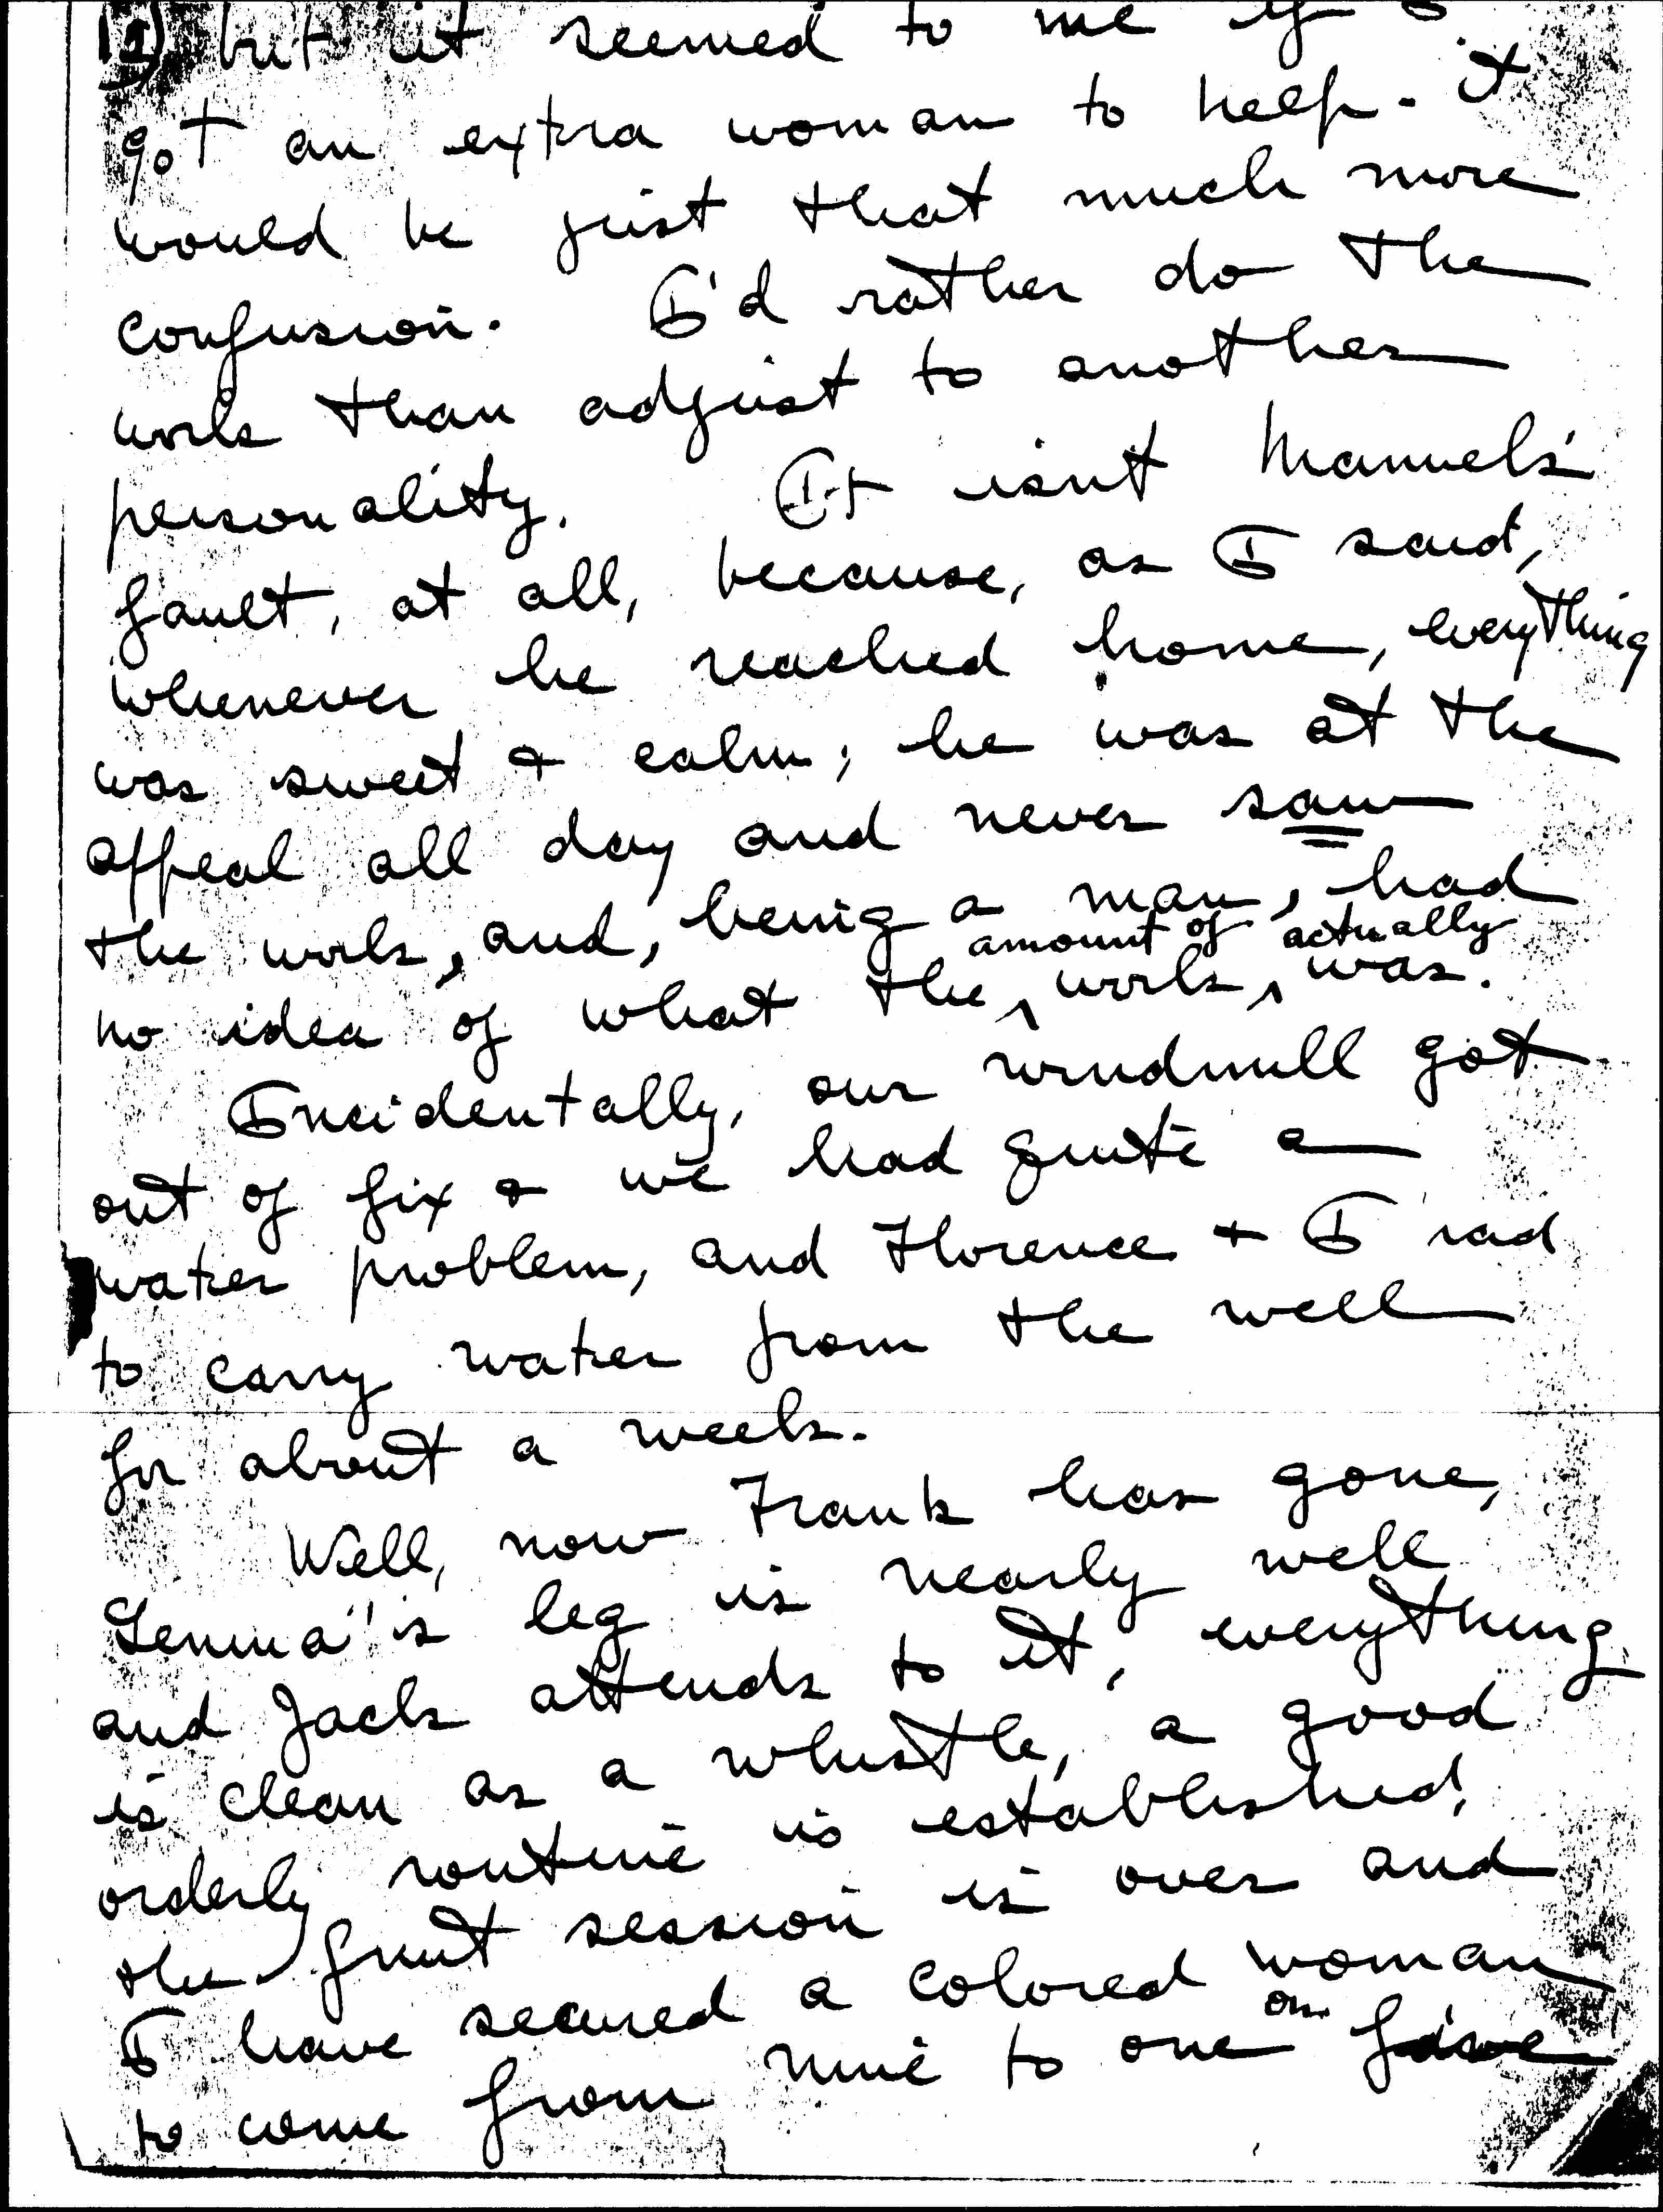 12) but it seemed to me if I
got an extra woman to help - it
would be just that much more
confusion. I'd rather do the
work than adjust to another
personality. It isn't Manuel's
fault, at all, because, as I said,
whenever he reached home, everything
was sweet & calm; he was at the
appeal all day and never saw
the work, and, being a man, had
no idea of what the amount of work actually was.
Incidentally, our windmill got
out of fix & we had quite a
water problem, and Florence + I had
to carry water from the well
for about a week.
Well, now Frank has gone,
Gemma's leg is nearly well
and Jack attends to it, everything
is clean as a whistle, a good
orderly routine is established,
the fruit session is over and
I have secured a colored woman
to come from nine to one on five